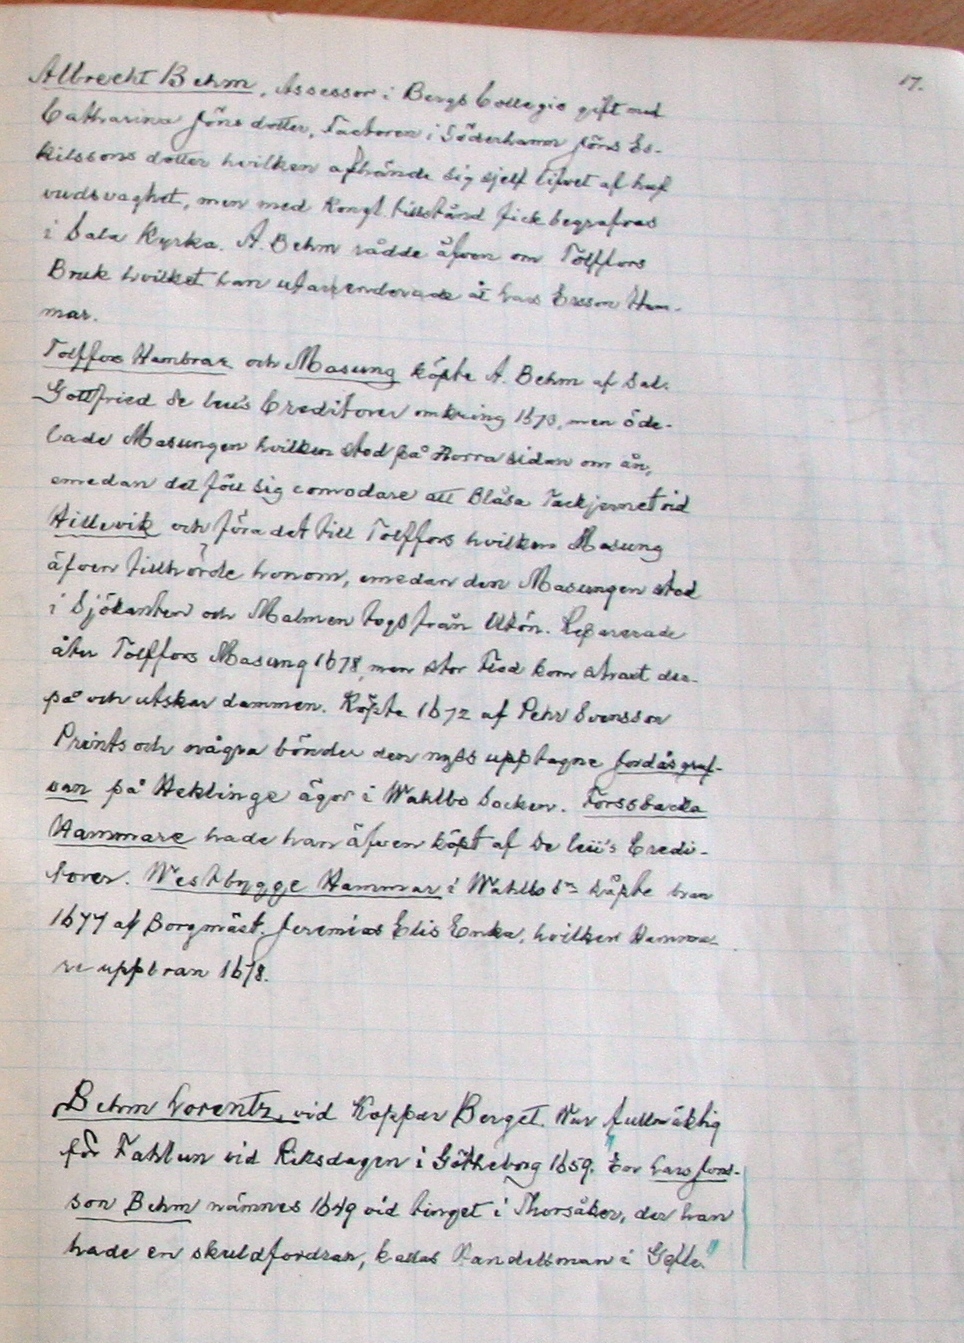 17.
Albrecht Behm, Assessor i Bergs Collegio gift med
Catharina Jöns dotter, Factoren i Söderhamn Jöns Es-
kilssons dotter hvilken afhände sig sjelf lifvet af huf
vudsvaghet, men med Kongl. tillstånd fick begrafvas
i Sala Kyrka. A. Behm rådde äfven om Tolffors
Bruk hvilket han utarrenderade åt Lars Ersson Ham-
mar.
Tolffors Hambrar och Masung köpte A. Behm af Sal.
Gottfried De leüs Creditorer omkring 1670, men öde-
lade Masungen hvilken stod på Norra sidan om ån,
emedan det föll sig comodare att Blåsa Tackjernet vid
Hillevik och föra det till Tolffors hvilken Masung
äfven tillhörde honom, emedan den Masungen stod
i Sjökanten och Malmen togs från Utön. Reparerade
åter Tolffors Masung 1678, men stor Flod kom straxt der-
på och utskar dammen. Köpte 1672 af Pehr Svensson
Prints och några bönder den nyss upptagne Jordåsgraf-
van på Heklinge ägor i Wahlbo Socken. Forssbacka
Hammare hade han äfven köpt af De leü's Credi-
torer. Westbygge Hammar i Wahlbo Sn köpte han
1677 af Borgmäst. Jeremias Elis Enka, hvilken Hamma-
re uppbran 1678.
Behm Lorentz, vid Koppar Berget. Var fullmäktig
för Fahlun vid Riksdagen i Götheborg 1659. "En Lars Jons-
son Behm nämnes 1649 vid tinget i Thorsåker, der han
hade en skuldfordran, kallas Handelsman i Gefle."